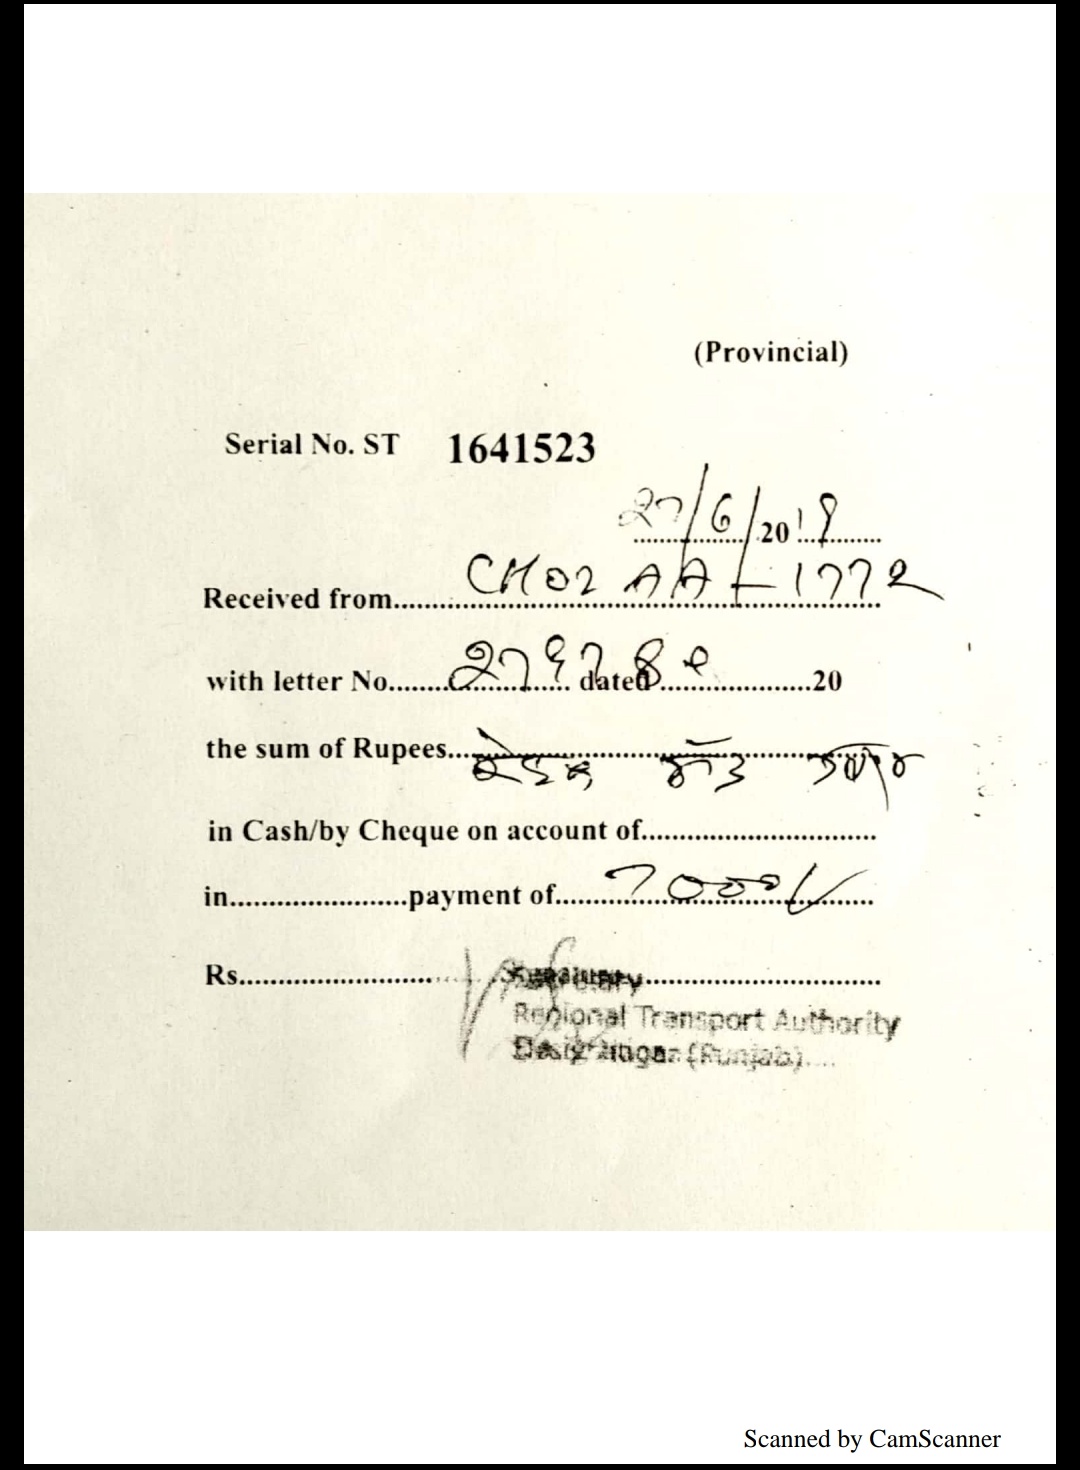 (Provincial)
Serial No. ST 1641523
27/6/2019
Received from CH02 AA-1772
with letter No. dated 20
the sum of Rupees
in Cash/by Cheque on account of
in payment of 7000/
Rs
Regional Transport Authority
(Punjab)
Scanned by CamScanner